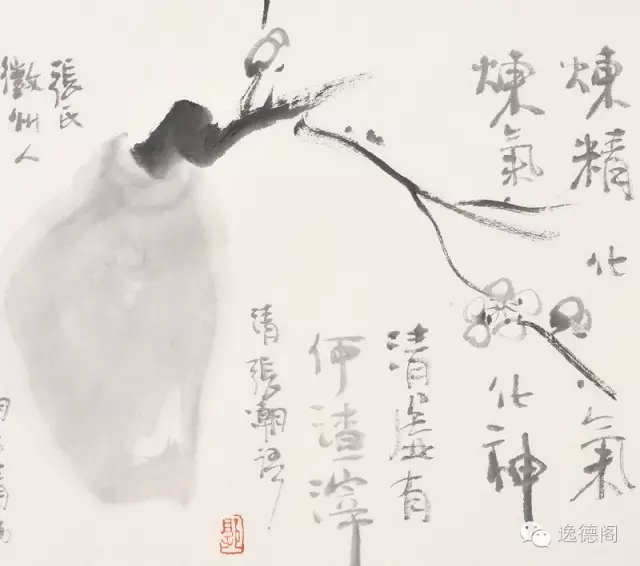 煉精化氣
煉氣化神
清虛有
何渣滓
清張潮語
張氏
徽州人
逸德阁